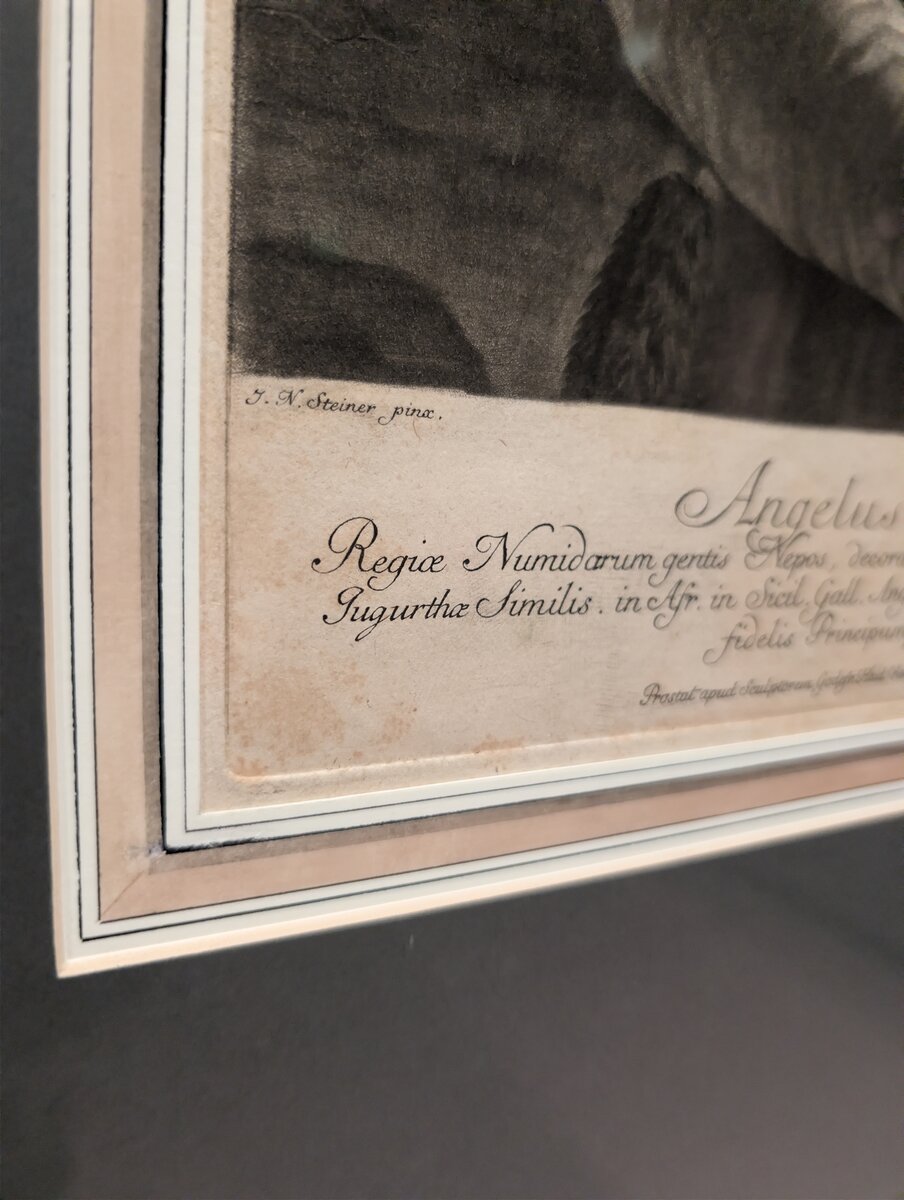 J. N. Steiner pinx.
Angelus
Regiæ Numidarum gentis Nepos, decora
Jugurthæ Similis. in Afr. in Sicil. Gall. Ang
fidelis Principum
Prostat apud Sculptorem